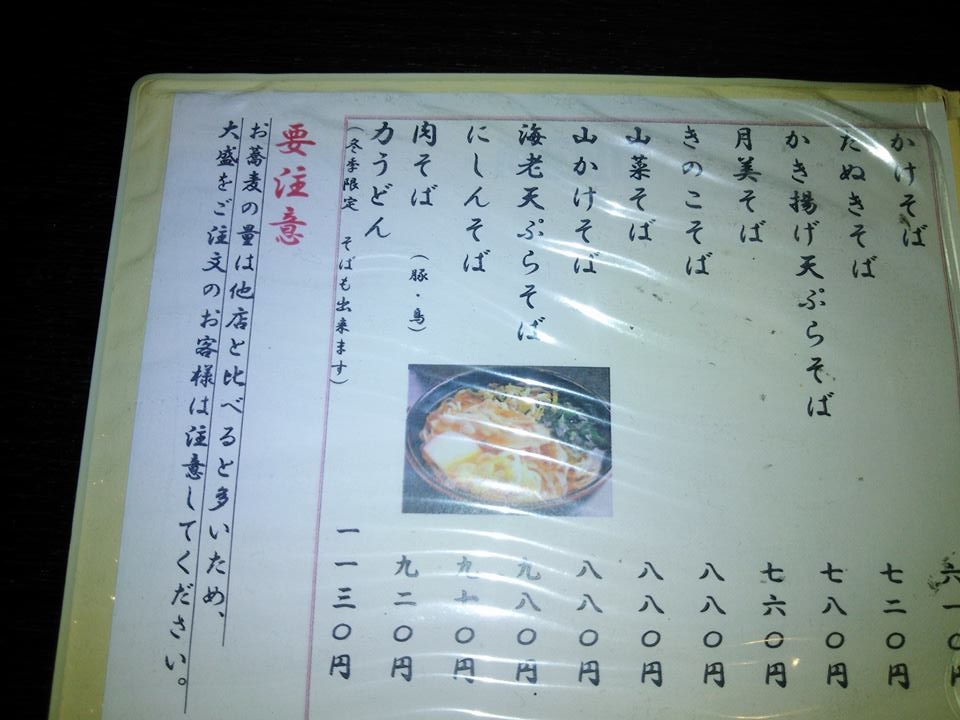 かけそば 六一〇円
たぬきそば 七二〇円
かき揚げ天ぷらそば 七八〇円
月美そば 七六〇円
きのこそば 八八〇円
山菜そば 八八〇円
山かけそば 八八〇円
海老天ぷらそば 九八〇円
にしんそば 九七〇円
肉そば (豚・鳥) 九二〇円
力うどん 一一三〇円
(冬季限定 そばも出来ます)
要注意
お蕎麦の量は他店と比べると多いため、
大盛をご注文のお客様は注意してください。